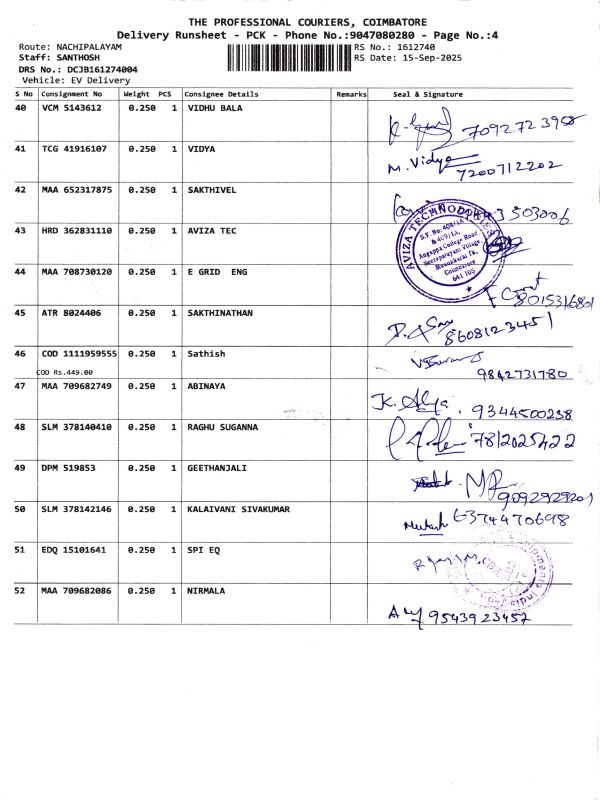 THE PROFESSIONAL COURIERS, COIMBATORE
Delivery Runsheet - PCK - Phone No.:9047080280 - Page No.:4
Route: NACHIPALAYAM RS No.: 1612740
Staff: SANTHOSH RS Date: 15-Sep-2025
DRS No.: DCJB161274004
Vehicle: EV Delivery
S No Consignment No Weight PCS Consignee Details Remarks Seal & Signature
40 VCM 5143612 0.250 1 VIDHU BALA
7092723958
41 TCG 41916107 0.250 1 VIDYA
M. Vidya 7200712202
42 MAA 652317875 0.250 1 SAKTHIVEL
43 HRD 362831110 0.250 1 AVIZA TEC
AVIZA TECHNO
S.F. No. 409/1A
& 409/1A,
Angappa College Road,
Seerapalayam Village,
Madukkarai Tk,
Coimbatore
641 105
44 MAA 708730120 0.250 1 E GRID ENG
8015316801
45 ATR 8024406 0.250 1 SAKTHINATHAN
8608123451
46 COD 1111959555 0.250 1 Sathish
COD Rs.449.00
9842731780
47 MAA 709682749 0.250 1 ABINAYA
9344500238
48 SLM 378140410 0.250 1 RAGHU SUGANNA
49 DPM 519853 0.250 1 GEETHANJALI
9092929201
50 SLM 378142146 0.250 1 KALAIVANI SIVAKUMAR
Mukesh 6374470698
51 EDQ 15101641 0.250 1 SPI EQ
52 MAA 709682086 0.250 1 NIRMALA
9543923457